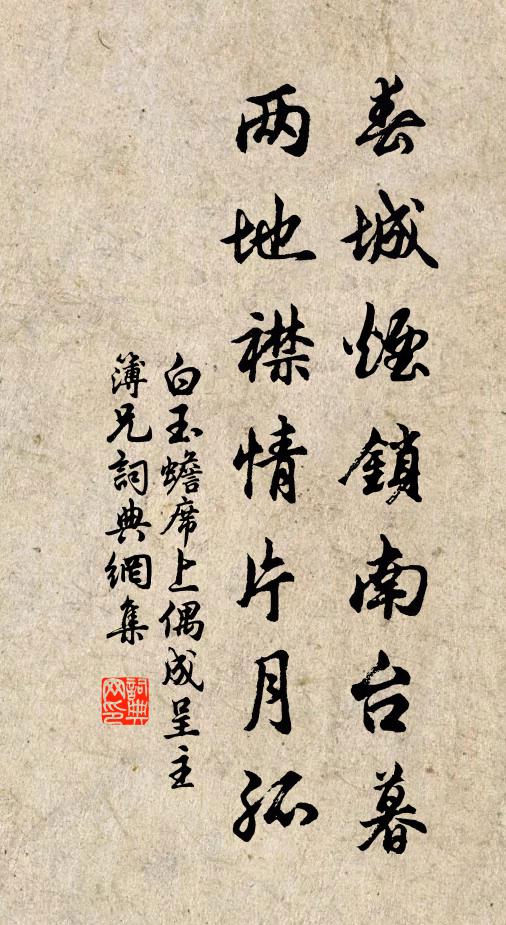 春城煙鎖南台暮
两地襟情片月孤
白玉蟾席上偶成呈主
簿兄詞典網集
詞典
网印